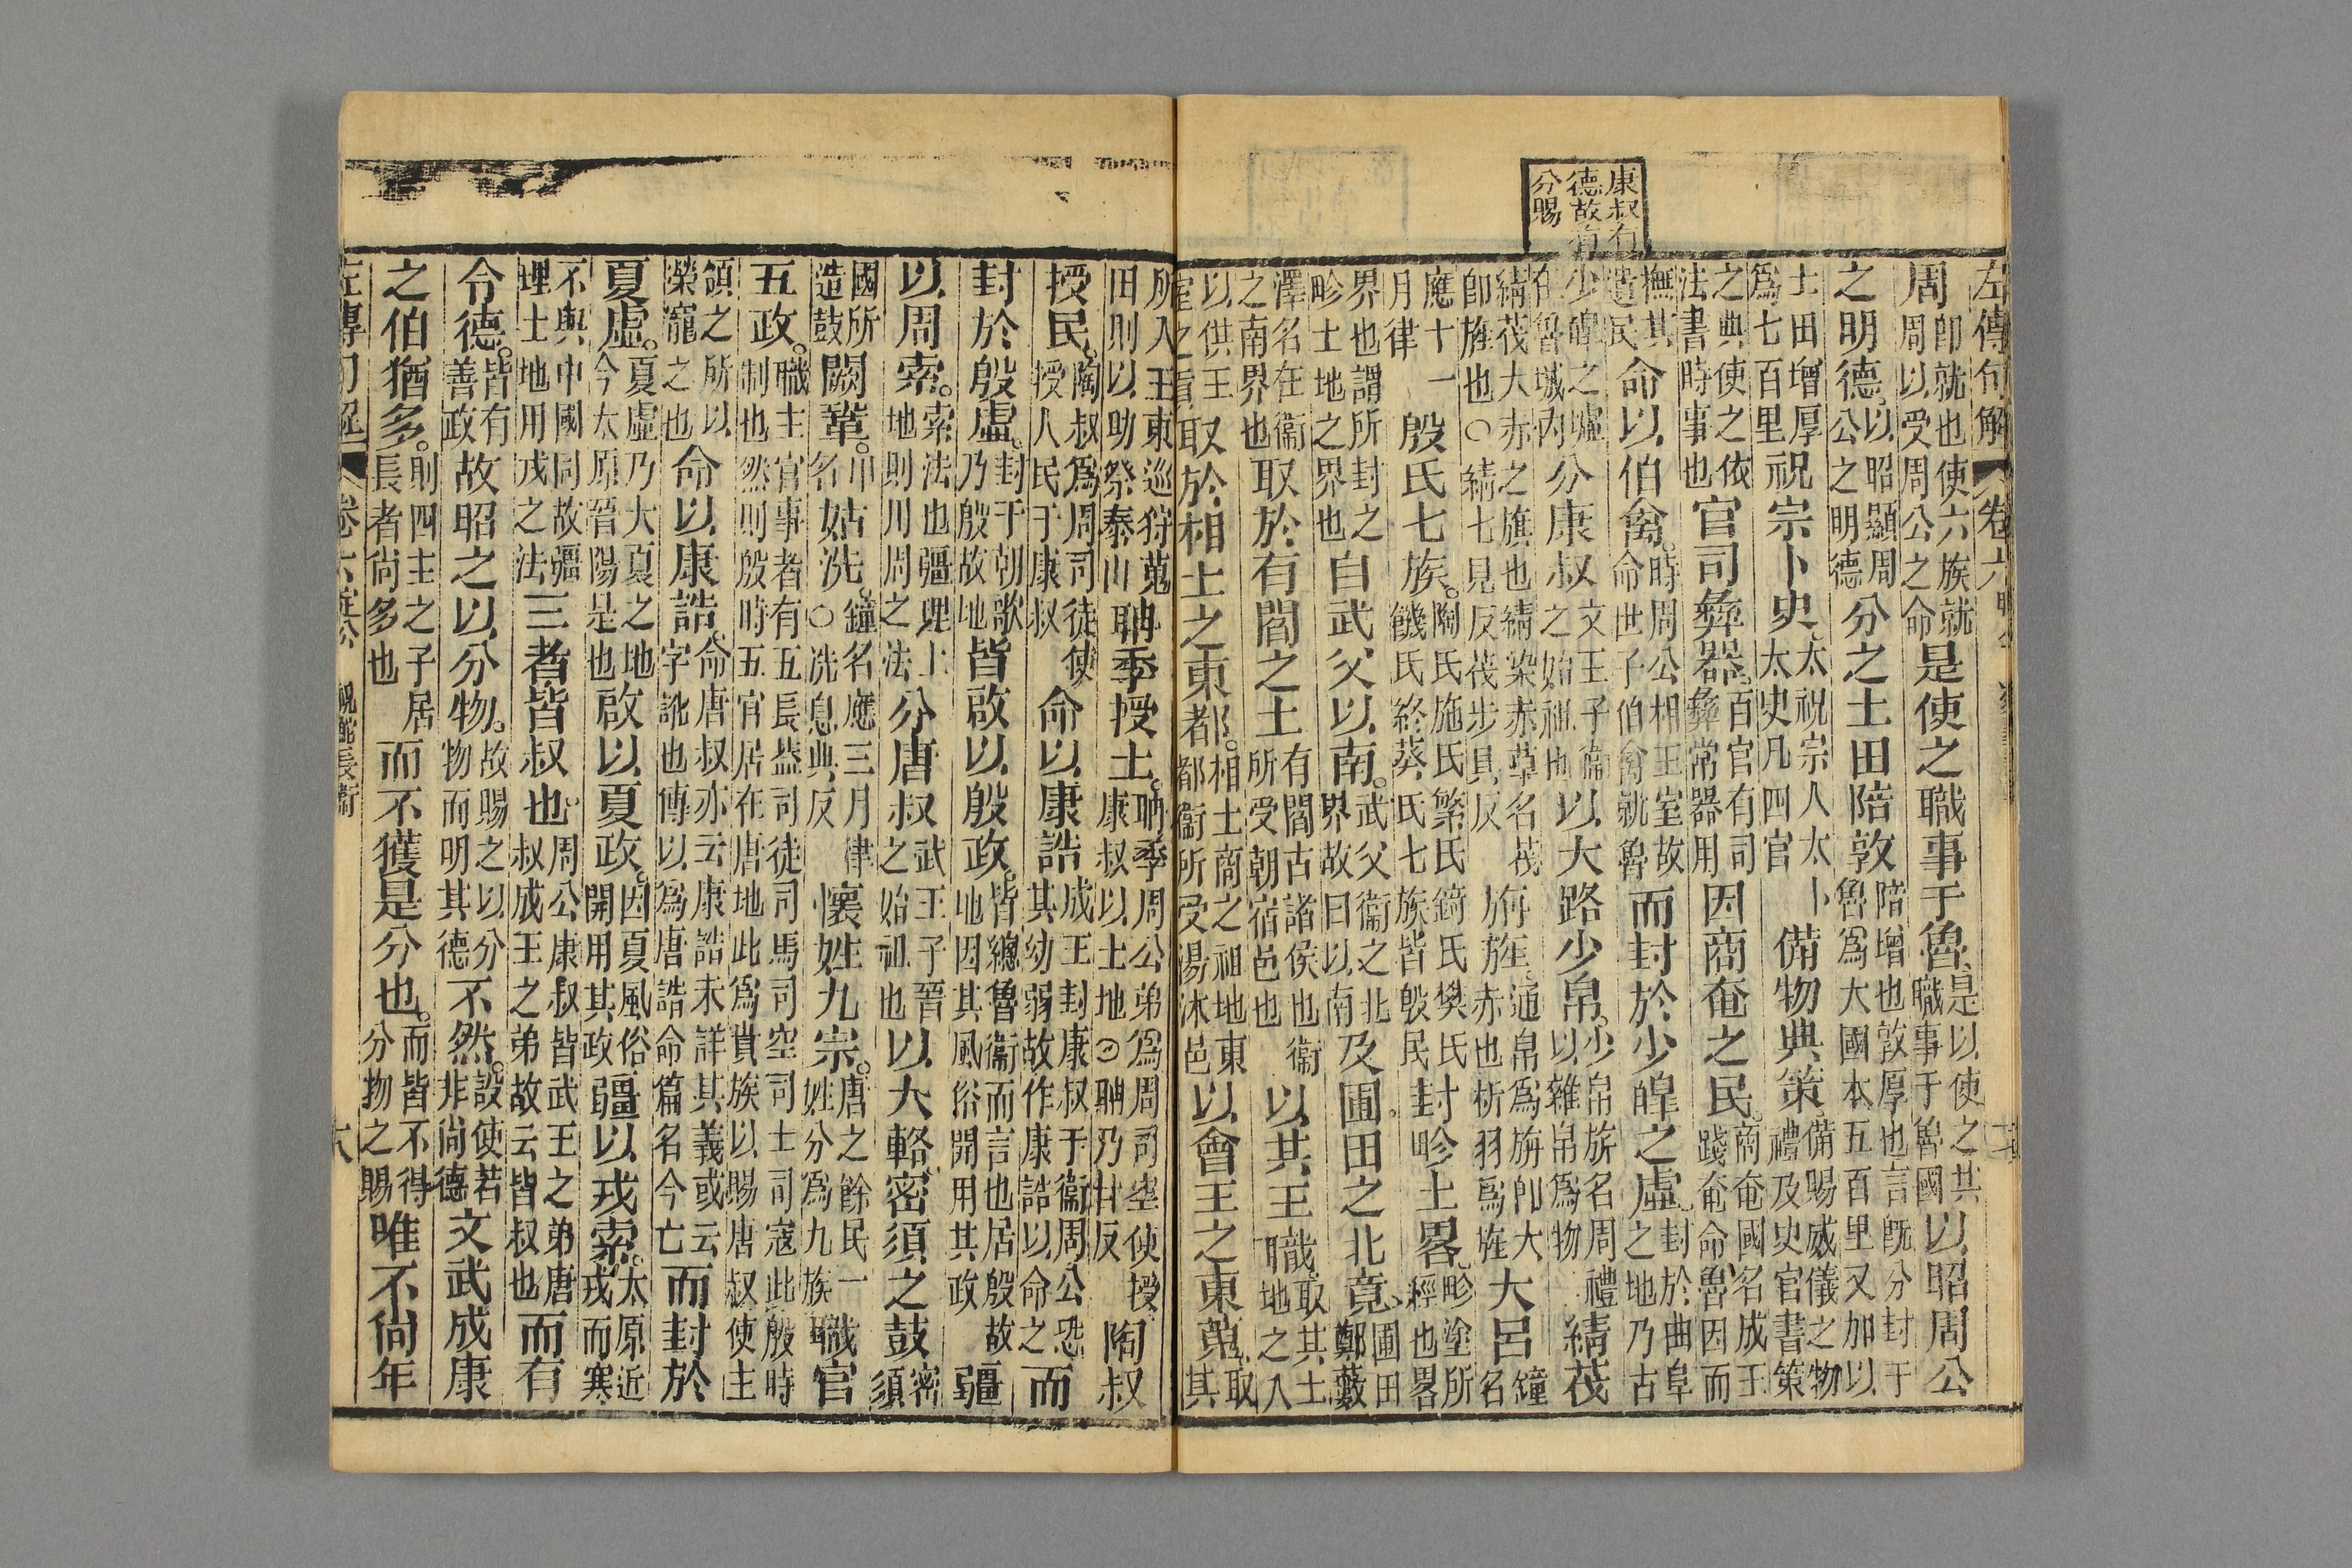 左傳句解 卷六
康叔有
德故有
分賜
周卽就也使六族就周以受周公之命是使之職事于魯是以使之其職事于魯國以昭周公
之明德以昭顯周公之明德分之土田陪敦陪增也敦厚也言旣分封于魯爲大國本五百里又加以
土田增厚爲七百里祝宗卜史太祝宗人太卜太史凡四官備物典策備賜威儀之物禮及史官書策
之典使之依法書時事也官司彝器百官有司彝常器用因商奄之民商奄國名成王踐奄命魯因而
撫其遺民命以伯禽時周公相王室故命世子伯禽就魯而封於少皥之虛封於曲阜之地乃古
少皥之墟在魯城內分康叔文王子衞之始祖也以大路少帛少帛旂名周禮以雜帛爲物綪茷
綪茷大赤之旗也綪染赤草名茷卽旌也○綪七見反茷步具反旃旌通帛爲旃卽大赤也析羽爲旌大呂鐘名
應十一月律殷氏七族陶氏施氏繁氏錡氏樊氏饑氏終葵氏七族皆殷民封畛土畧畛塗所經也畧
界也謂所封之畛土地之界也自武父以南武父衞之北界故曰以南及圃田之北竟圃田鄭藪
澤名在衞之南界也取於有閻之土有閻古諸侯也衞所受朝宿邑也以其王職取其土地之入
以供王室之取於相土之東都相土商之祖地東都衞所受湯沐邑以會王之東蒐取其
所入王東巡狩蒐田則以助祭泰山聃季授土聃季周公弟爲周司空使授康叔以土地○聃乃甘反陶叔
授民陶叔爲周司徒使授人民于康叔命以康誥成王封康叔于衞周公恐其幼弱故作康誥以命之而
封於殷虛封于朝歌乃殷故地皆啟以殷政皆總魯衞而言也居殷故地因其風俗開用其政疆
以周索索法也疆理土地則用周之法分唐叔武王子晉之始祖也以大輅密須之鼓密須
國所造鼓闕鞏甲名姑洗鐘名應三月律○洗息典反懷姓九宗唐之餘民一姓分爲九族職官
五政職主官事者有五長蓋司徒司馬司空司士司寇此殷時制也然則殷時五官居在唐地此爲貴族以賜唐叔使主
領之所以榮寵之也命以康誥命唐叔亦云康誥未詳其義或云字訛也傳以爲唐誥命篇名今亡而封於
夏虛夏虛乃大夏之地今太原晉陽是也啟以夏政因夏風俗開用其政疆以戎索太原近戎而寒
不與中國同故疆理土地用戎之法三者皆叔也周公康叔皆武王之弟唐叔成王之弟故云皆叔也而有
令德皆有善政故昭之以分物故賜之以分物而明其德不然設使若非尚德文武成康
之伯猶多則四主之子居長者尚多也而不獲是分也而皆不得分物之賜唯不尚年
左傳句解 卷六定公 祝鮀長衞 六